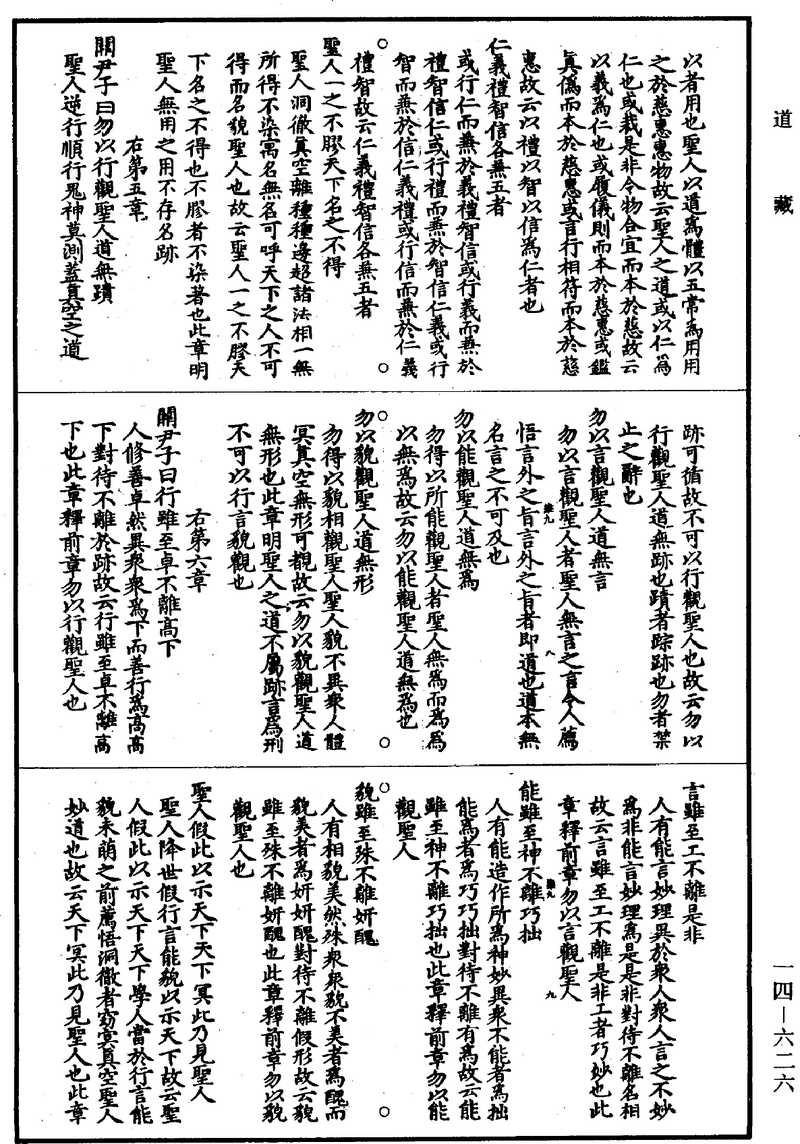 道藏
以者用也聖人以道爲體以五常爲用用
之於慈惠惠物故云聖人之道或以仁爲
仁也或裁是非令物合宜而本於慈故云
以義爲仁也或履儀則而本於慈惠或鑑
眞僞而本於慈惠或言行相符而本於慈
惠故云以禮以智以信爲仁者也
仁義禮智信各兼五者
或行仁而兼於義禮智信或行義而兼於
禮智信仁或行禮而兼於智信仁義或行
智而兼於信仁義禮或行信而兼於仁義
禮智故云仁義禮智信各兼五者
聖人一之不膠天下名之不得
聖人洞徹眞空離種種邊超諸法相一無
所得不染寓名無名可呼天下之人不可
得而名貌聖人也故云聖人一之不膠天
下名之不得也不膠者不染著也此章明
聖人無用之用不存名跡
右第五章
關尹子曰勿以行觀聖人道無蹟
聖人逆行順行鬼神莫測蓋眞空之道
跡可循故不可以行觀聖人也故云勿以
行觀聖人道無跡也蹟者踪跡也勿者禁
止之辭也
勿以言觀聖人道無言
勿以言觀聖人者聖人無言之言令人薦
悟言外之旨言外之旨者即道也道本無
名言之不可及也
勿以能觀聖人道無爲
勿得以所能觀聖人者聖人無爲而爲爲
以無爲故云勿以能觀聖人道無爲也
勿以貌觀聖人道無形
勿得以貌相觀聖人聖人貌不異衆人體
冥眞空無形可覩故云勿以貌觀聖人道
無形也此章明聖人之道不屬跡言爲形
不可以行言貌觀也
右第六章
關尹子曰行雖至卓不離高下
人修善卓然異衆衆爲下而善行爲高高
下對待不離於跡故云行雖至卓不離高
下也此章釋前章勿以行觀聖人也
言雖至工不離是非
人有能言妙理異於衆人衆人言之不妙
爲非能言妙理爲是是非對待不離名相
故云言雖至工不離是非工者巧妙也此
章釋前章勿以言觀聖人
能雖至神不離巧拙
人有能造作所爲神妙異衆不能者爲拙
能爲者爲巧巧拙對待不離有爲故云能
雖至神不離巧拙也此章釋前章勿以能
觀聖人
貌雖至殊不離妍醜
人有相貌美然殊衆衆貌不美者爲醜而
貌美者爲妍妍醜對待不離假形故云貌
雖至殊不離妍醜也此章釋前章勿以貌
觀聖人也
聖人假此以示天下天下冥此乃見聖人
聖人降世假行言能貌以示天下故云聖
人假此以示天下天下學人當於行言能
貌未萌之前薦悟洞徹者窈冥眞空聖人
妙道也故云天下冥此乃見聖人也此章
一四—六二六